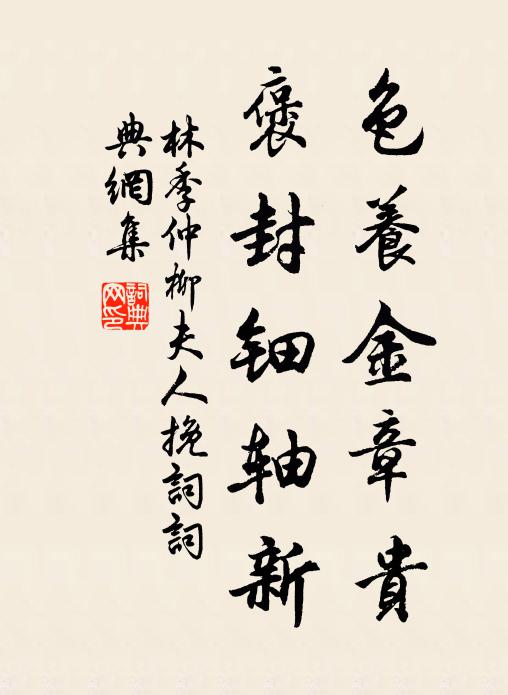 色養金章貴
褒封钿轴新
林季仲柳夫人挽詞詞
典網集
詞典网印